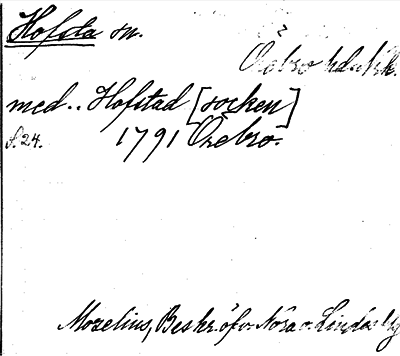 Hofsta sn.
Örebro
med.. Hofstad [socken]
s. 24. 1791 Örebro.
Morelius, Beskr. öfv. Nora o. Lindes bg